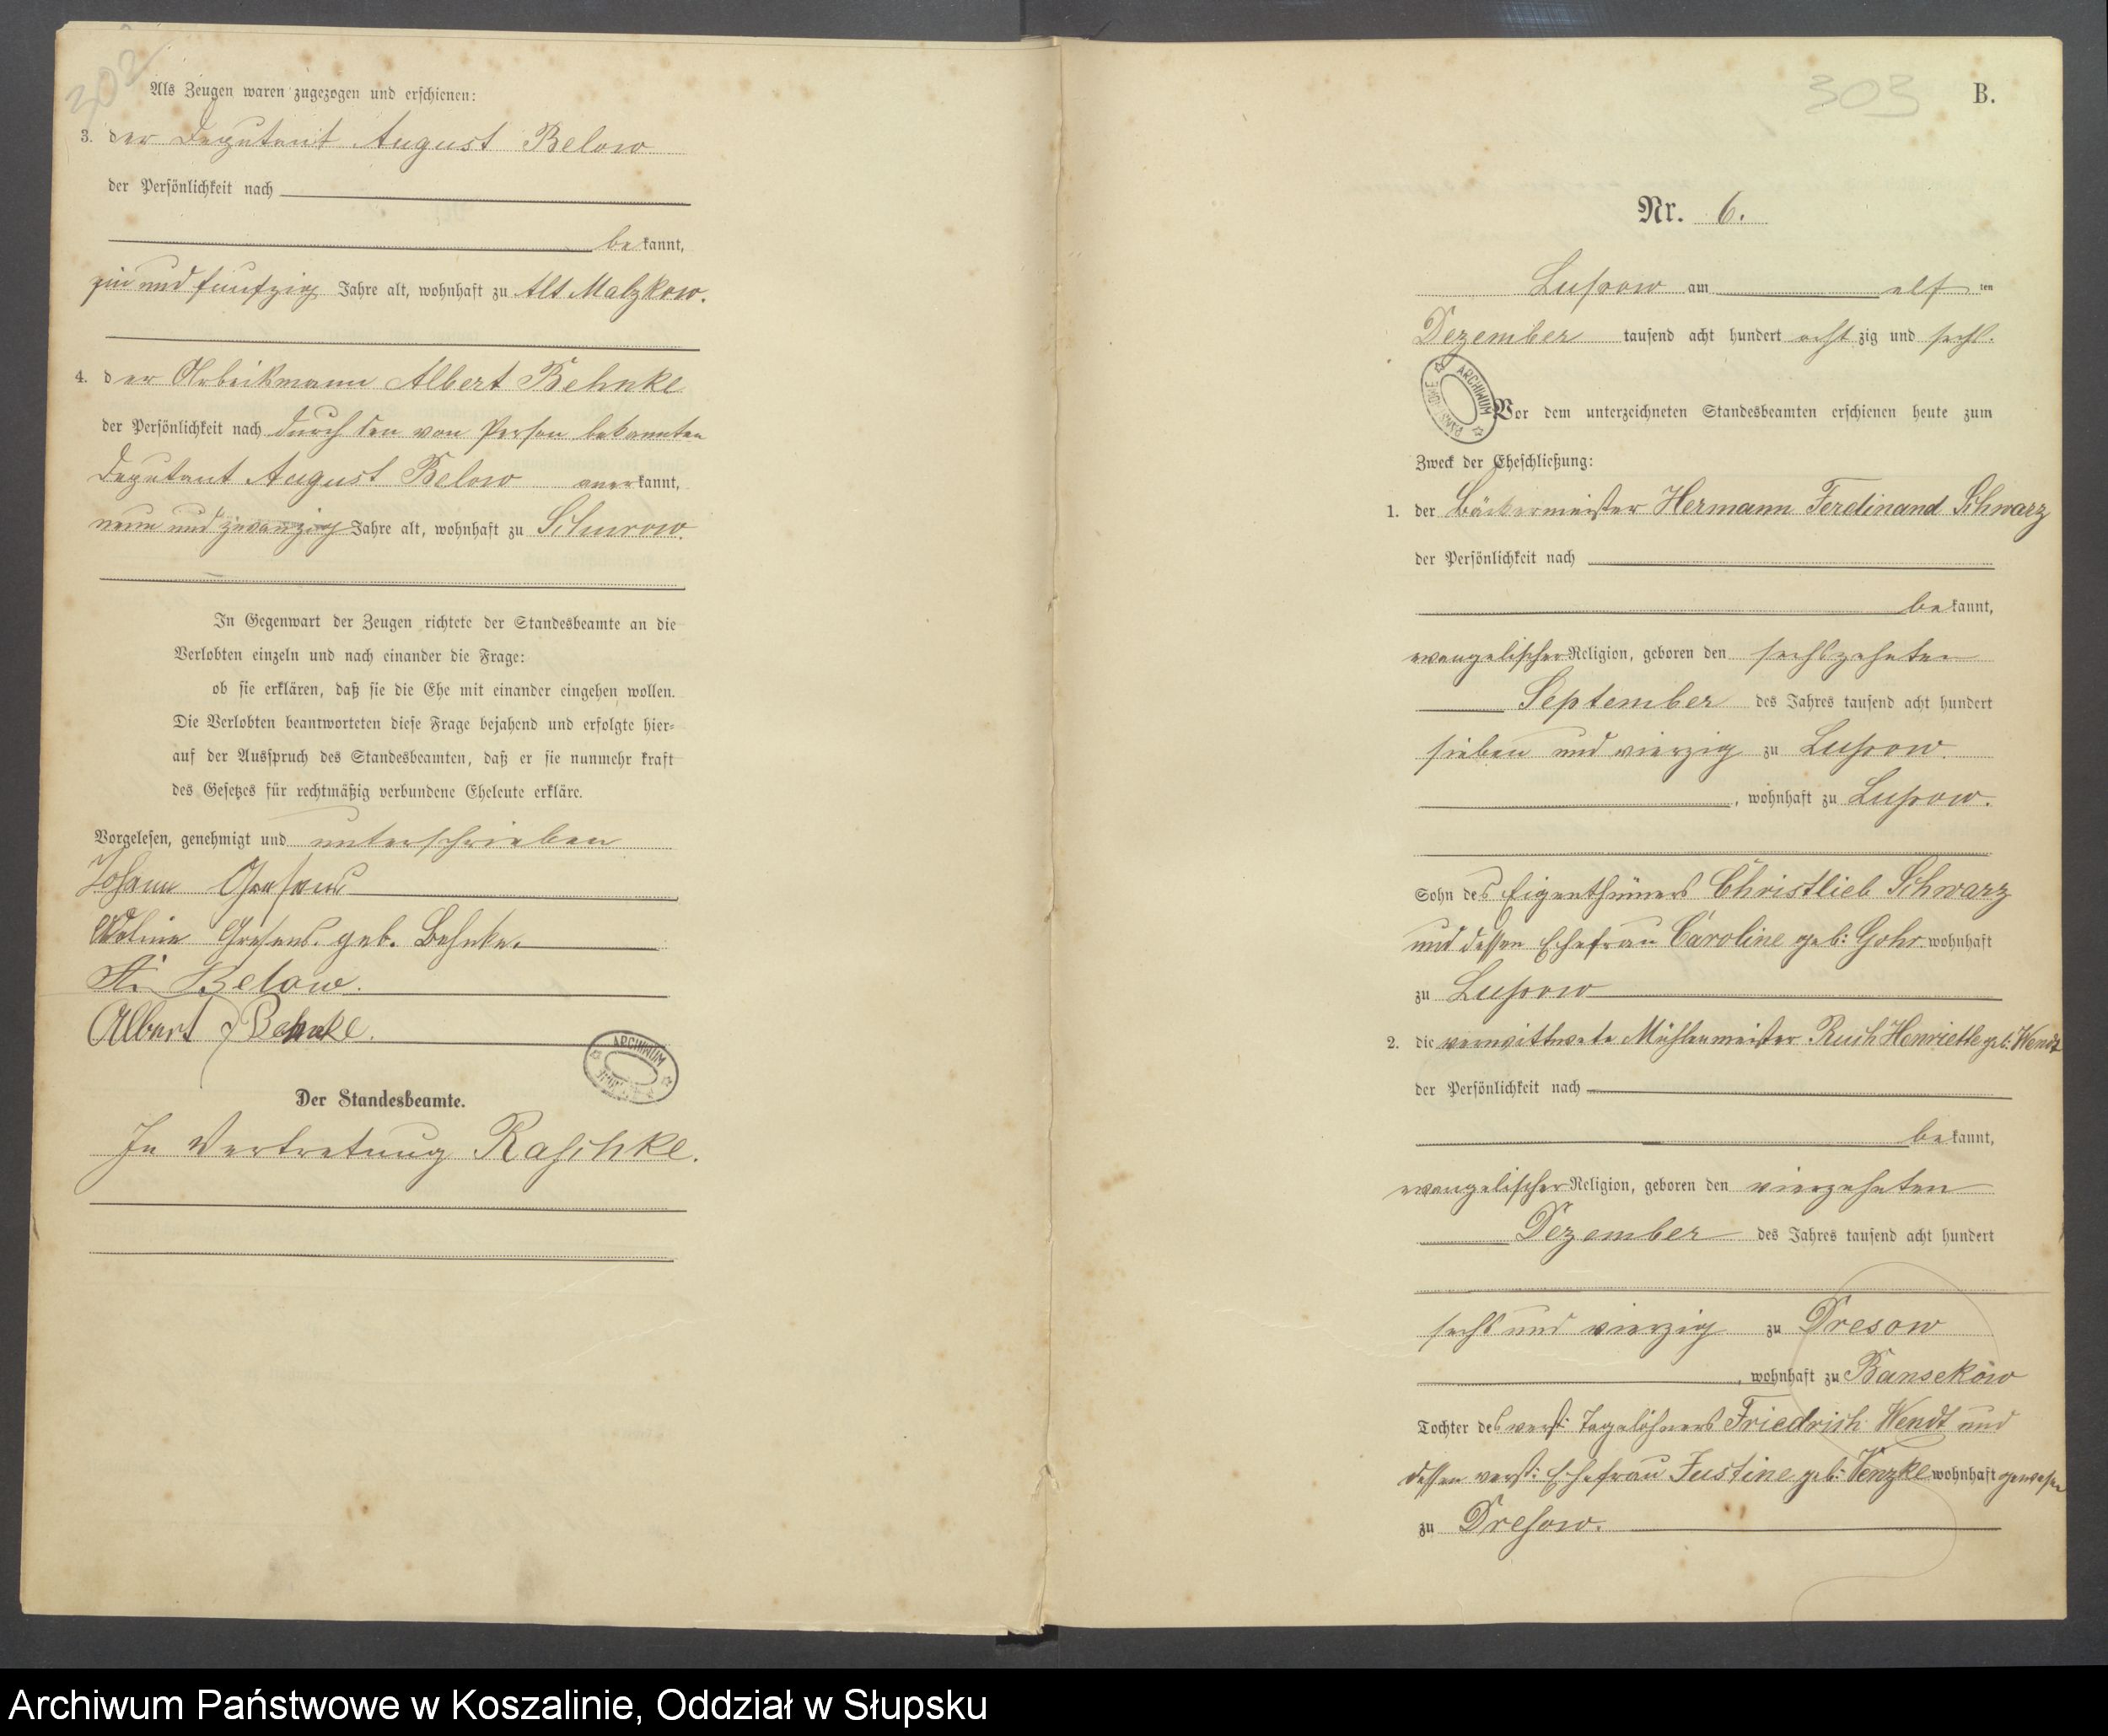 302
Als Zeugen waren zugezogen und erschienen:
3. der Deputant August Below
der Persönlichkeit nach
bekannt,
ein und fünfzig Jahre alt, wohnhaft zu Alt Malzkow.
4. der Arbeitsmann Albert Behnke
der Persönlichkeit nach durch den von Person bekannten
Deputant August Below anerkannt,
neun und zwanzig Jahre alt, wohnhaft zu Schurow.
In Gegenwart der Zeugen richtete der Standesbeamte an die
Verlobten einzeln und nach einander die Frage:
ob sie erklären, daß sie die Ehe mit einander eingehen wollen.
Die Verlobten beantworteten diese Frage bejahend und erfolgte hier-
auf der Ausspruch des Standesbeamten, daß er sie nunmehr kraft
des Gesetzes für rechtmäßig verbundene Eheleute erkläre.
Vorgelesen, genehmigt und unterschrieben
Johann
geb. Behnke.
Below.
Albert Behnke.
ARCHIWUM
Der Standesbeamte.
In Vertretung Raschke.
303
B.
Nr. 6.
Lupow am elften
Dezember tausend acht hundert achtzig und sechs.
ARCHIWUM PAŃSTWOWE
Vor dem unterzeichneten Standesbeamten erschienen heute zum
Zweck der Eheschließung:
1. der Bäckermeister Hermann Ferdinand Schwarz
der Persönlichkeit nach
bekannt,
evangelischer Religion, geboren den sechszehnten
September des Jahres tausend acht hundert
sieben und vierzig zu Lupow.
, wohnhaft zu Lupow.
Sohn des Eigenthümers Christlieb Schwarz
und dessen Ehefrau Caroline geb: Gohr wohnhaft
zu Lupow
2. die verwittwete Mühlenmeister Ruch Henriette geb: Wendt
der Persönlichkeit nach
bekannt,
evangelischer Religion, geboren den vierzehnten
Dezember des Jahres tausend acht hundert
sechs und vierzig zu Dresow
, wohnhaft zu Bansekow
Tochter des verst: Tagelöhners Friedrich Wendt und
dessen verst: Ehefrau Justine geb: Venzke wohnhaft gewesen
zu Dresow.
Archiwum Państwowe w Koszalinie, Oddział w Słupsku